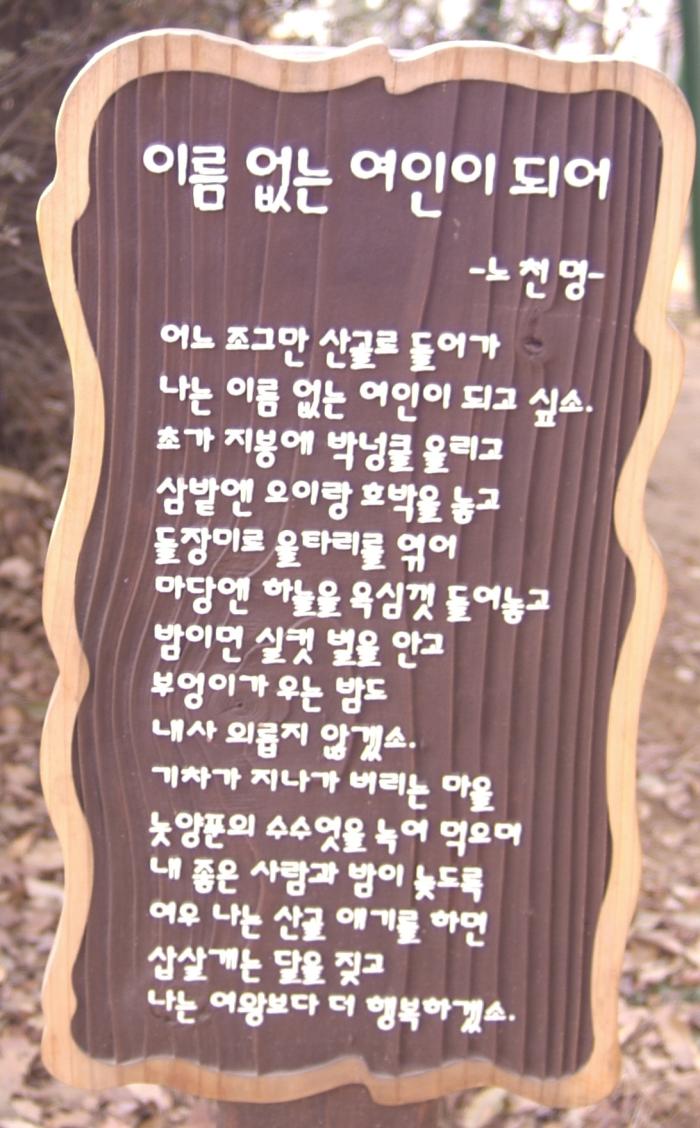 이름 없는 여인이 되어
-노천명-
어느 조그만 산골로 들어가
나는 이름 없는 여인이 되고 싶소.
초가 지붕에 박넝쿨 올리고
삼밭엔 오이랑 호박을 놓고
들장미로 울타리를 엮어
마당엔 하늘을 욕심껏 들여놓고
밤이면 실컷 별을 안고
부엉이가 우는 밤도
내사 외롭지 않겠소.
기차가 지나가 버리는 마을
놋양푼의 수수엿을 녹여 먹으며
내 좋은 사람과 밤이 늦도록
여우 나는 산골 얘기를 하면
삽살개는 달을 짖고
나는 여왕보다 더 행복하겠소.